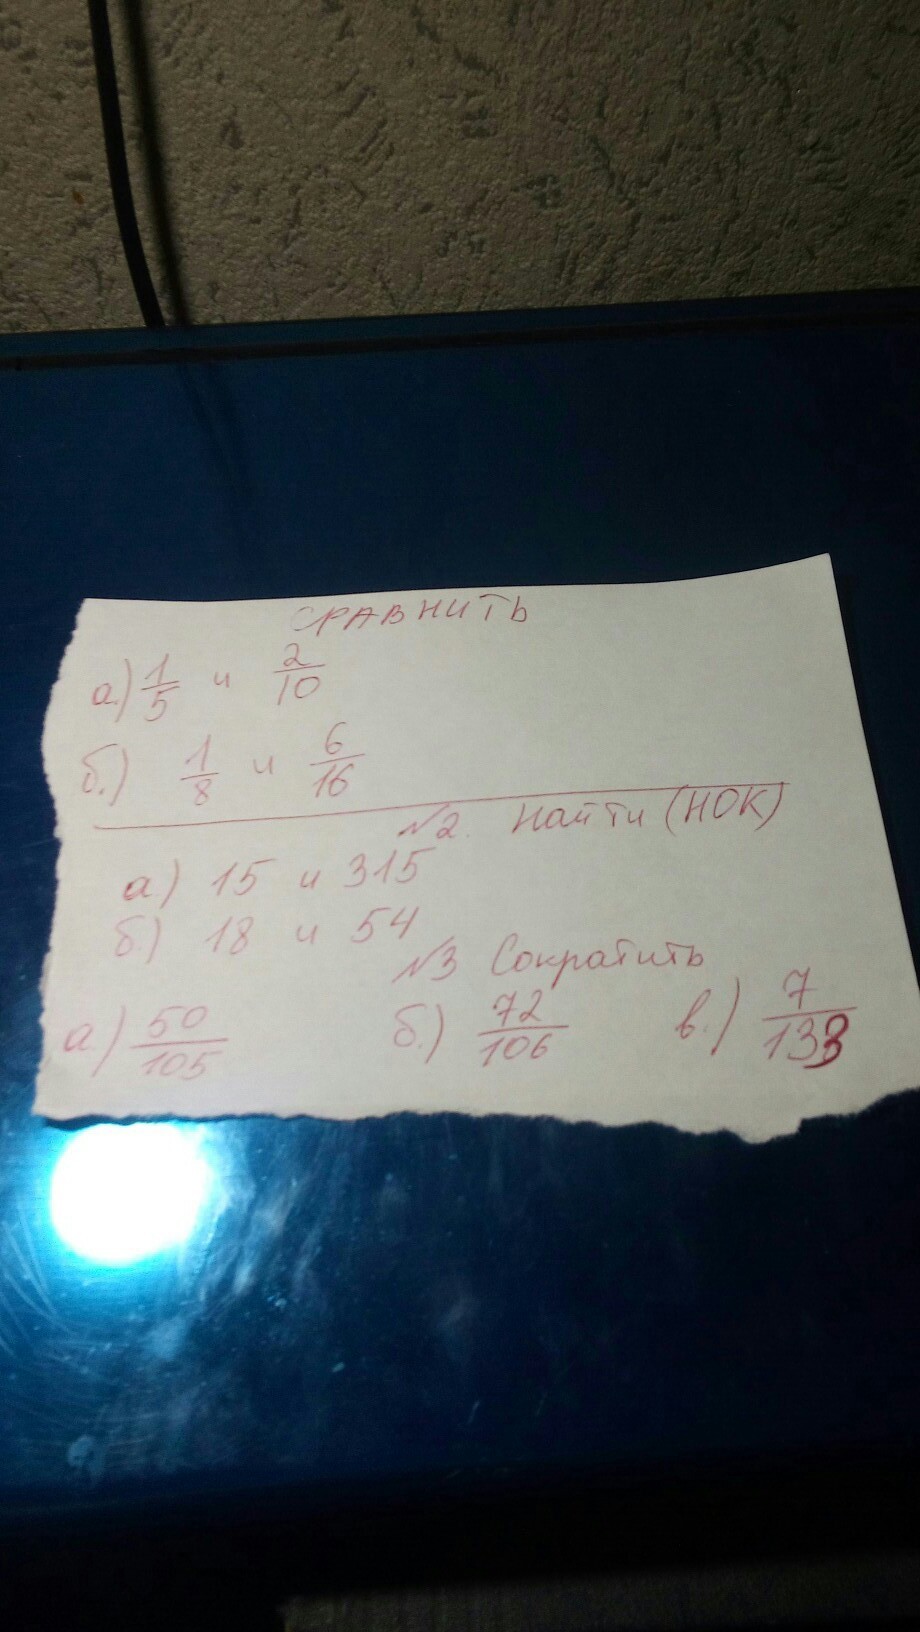 СРАВНИТЬ
а.) 1/5 и 2/10
б.) 1/8 и 6/16
№2. Найти (НОК)
а) 15 и 315
б.) 18 и 54
№3 Сократить
а.) 50/105 б.) 72/106 в.) 7/133